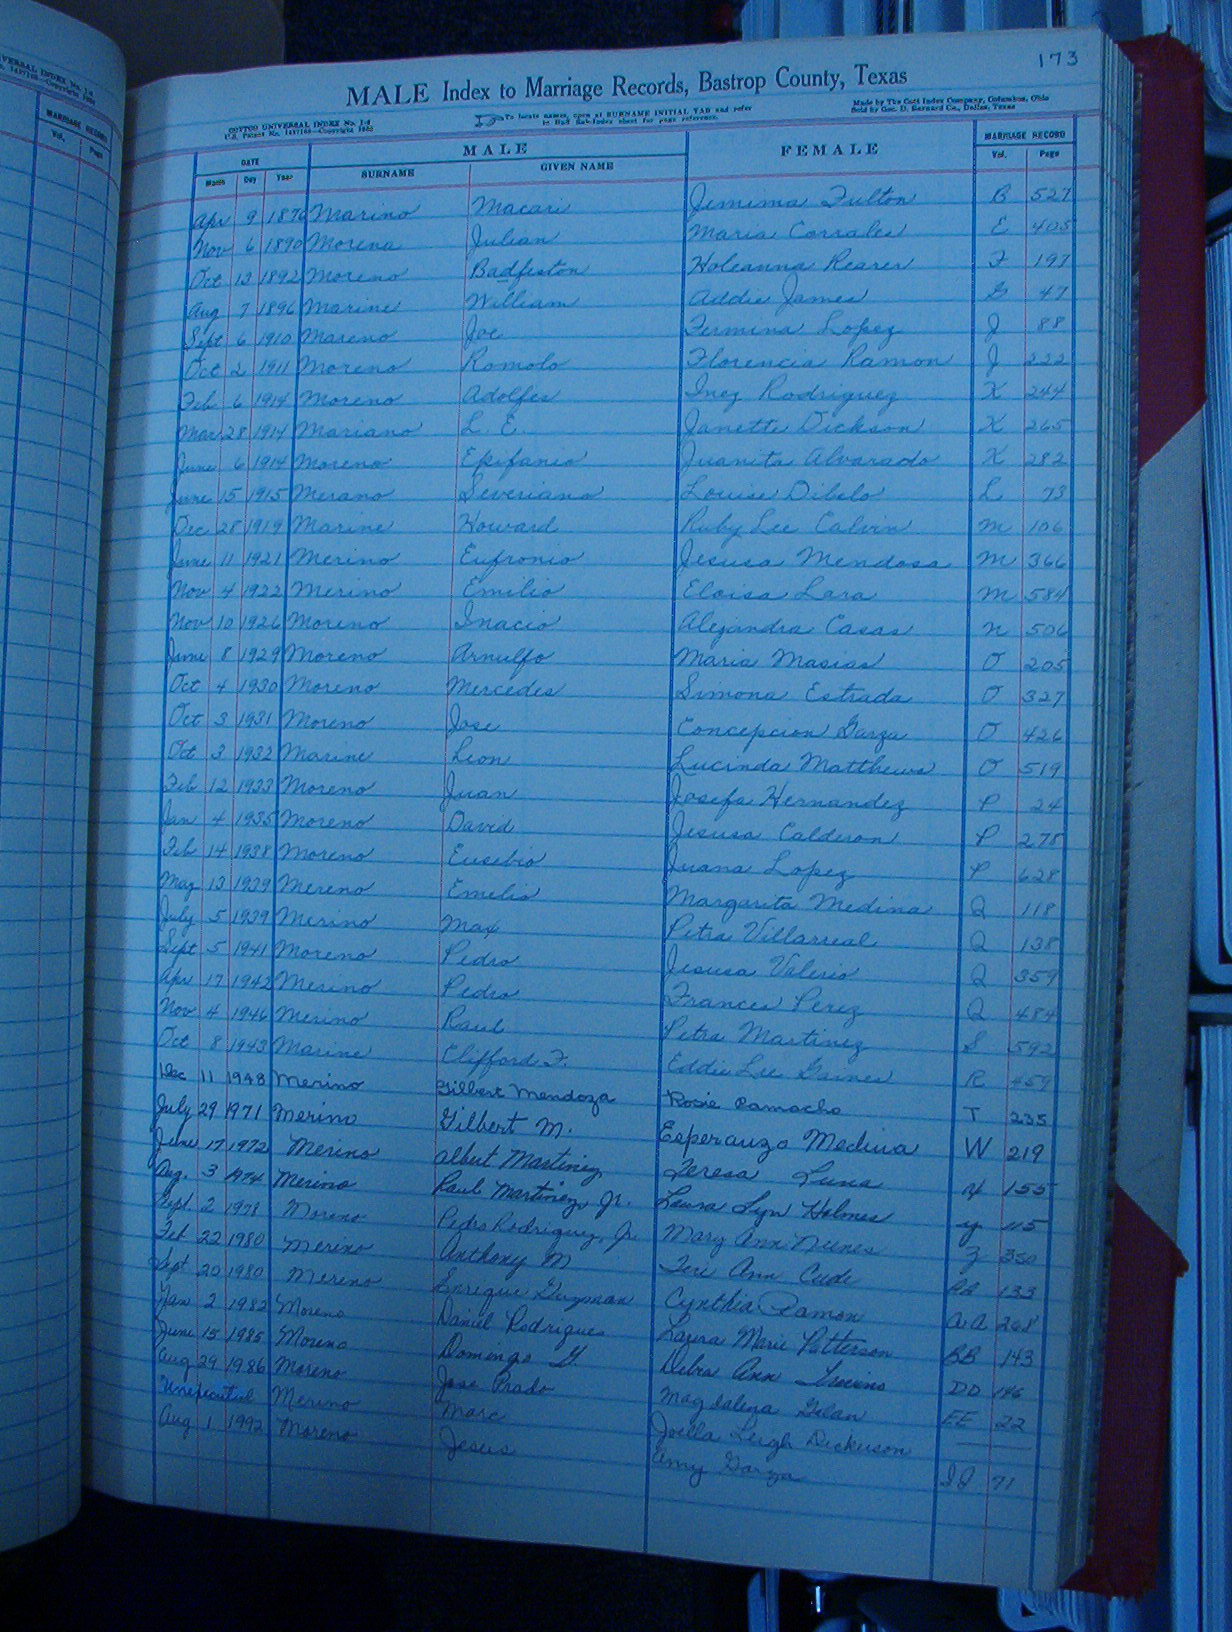 173
MALE Index to Marriage Records, Bastrop County, Texas
COTTCO UNIVERSAL INDEX No. 1-d
To locate names, open at SURNAME INITIAL TAB and refer
Made by The Cott Index Company, Columbus, Ohio
U.S. Patent No. 1457168—Copyright
to Half Sub-Index sheet for page reference.
Sold by Geo. D. Barnard Co., Dallas, Texas
DATE MALE FEMALE MARRIAGE RECORD
Month Day Year SURNAME GIVEN NAME Vol. Page
Apr 9 1876 Marino Macari Jemima Fulton B 527
Nov 6 1890 Morena Julian Maria Corrales E 405
Oct 13 1892 Moreno Badfeston Holeanna Rearer F 197
Aug 7 1896 Marine William Addie James G 47
Sept 6 1910 Mareno Joe Fermina Lopez J 88
Oct 2 1911 Moreno Romolo Florencia Ramon J 222
Feb 6 1914 Moreno Adolfer Inez Rodriguez K 244
Mar 28 1914 Mariano L. E. Janette Dickson K 265
June 6 1914 Moreno Epifanio Juanita Alvarado K 282
June 15 1915 Merano Severiano Louise Dibelo L 73
Dec 28 1919 Marine Howard Ruby Lee Calvin M 106
June 11 1921 Merino Eufronio Jesusa Mendosa M 366
Nov 4 1922 Merino Emilio Eloisa Lara M 584
Nov 10 1926 Moreno Inacio Alejandra Casas N 506
June 8 1929 Moreno Arnulfo Maria Masias O 205
Oct 4 1930 Moreno Mercedes Simona Estrada O 327
Oct 3 1931 Moreno Jose Concepcion Garza O 426
Oct 3 1932 Marine Leon Lucinda Matthews O 519
Feb 12 1933 Moreno Juan Josefa Hernandez P 24
Jan 4 1935 Moreno David Jesusa Calderon P 278
Feb 14 1938 Moreno Eusebio Juana Lopez P 628
May 13 1939 Mereno Emelio Margarita Medina Q 118
July 5 1939 Merino Max Petra Villarreal Q 138
Sept 5 1941 Moreno Pedro Jesusa Valerio Q 359
Apr 17 1942 Merino Pedro Frances Perez Q 484
Nov 4 1946 Merino Raul Petra Martinez S 592
Oct 8 1943 Marine Clifford F. Eddie Lee Garner R 459
Dec 11 1948 Merino Gilbert Mendoza Rosie Camacho T 235
July 29 1971 Merino Gilbert M. Esperanza Medina W 219
June 17 1972 Merino Albert Martinez Teresa Luna X 155
Aug. 3 1974 Merino Raul Martinez, Jr. Laura Lyn Holmes Y 115
Sept. 2 1978 Moreno Pedro Rodriguez, Jr. Mary Ann Nunes Z 350
Feb 22 1980 Merino Anthony M Teri Ann Cude 133
Sept 20 1980 Mereno Enrique Guzman Cynthia Ramon AA 268
Jan 2 1982 Moreno Daniel Rodrigues Laura Marie Patterson BB 143
June 15 1985 Moreno Domingo G. Debra Ann DD 146
Aug 29 1986 Moreno Jose Prado Magdalena Gilan EE 22
Merino Marc Joella Leigh Dickerson
Aug 1 1992 Moreno Jesus Amy Garza 71
UNIVERSAL INDEX No. 1-d
MARRIAGE RECORD
Vol. Page